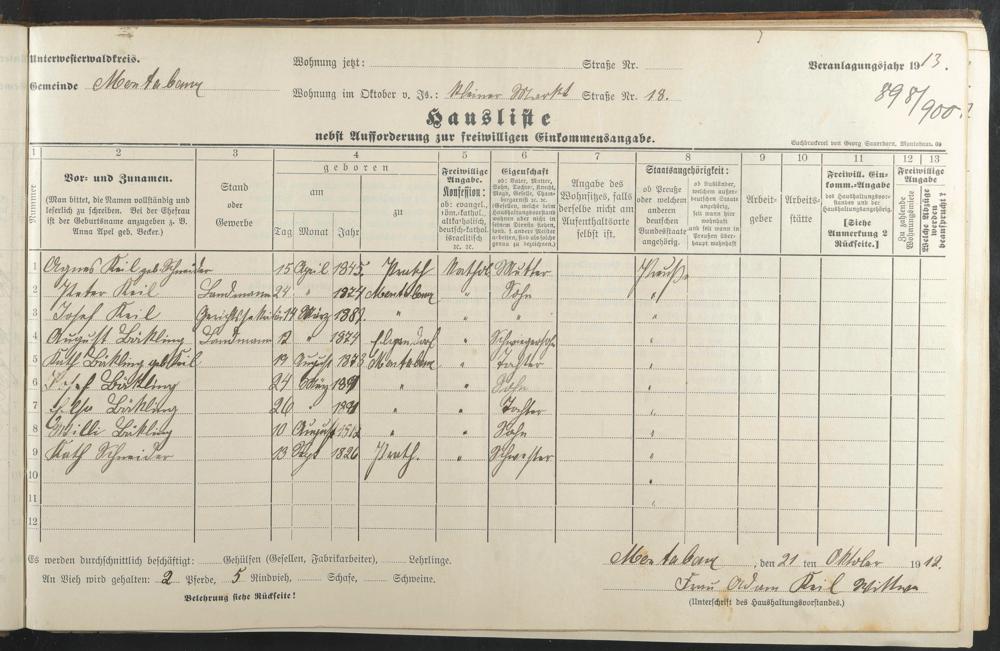 Unterwesterwaldkreis.
Wohnung jetzt: Straße Nr.
Veranlagungsjahr 1913.
Gemeinde Montabaur
Wohnung im Oktober v. Js.: Kleiner Markt Straße Nr. 18.
898/900
Hausliste
nebst Aufforderung zur freiwilligen Einkommensangabe.
Buchdruckerei von Georg Sauerborn, Montabaur. 09
1 2 3 4 5 6 7 8 9 10 11 12 13
Nummer
Vor- und Zunamen.
(Man bittet, die Namen vollständig und
leserlich zu schreiben. Bei der Ehefrau
ist der Geburtsname anzugeben z. B.
Anna Apel geb. Becker.)
Stand
oder
Gewerbe
geboren
am
Tag Monat Jahr
zu
Freiwillige
Angabe.
Konfession:
ob: evangel.,
röm.-kathol.,
altkatholisch,
deutsch-kathol.
israelitisch
ꝛc. ꝛc.
Eigenschaft
ob: Vater, Mutter,
Sohn, Tochter, Knecht,
Magd, Geselle,
welche beim
Haushaltungsvorstand
wohnen oder nicht
genau zu bezeichnen.)
Angabe des
Wohnsitzes, falls
derselbe nicht am
Aufenthaltsorte
selbst ist.
Staatsangehörigkeit:
ob Preuße
oder welchem
anderen
deutschen
Bundesstaate
angehörig.
ob Ausländer,
welchem außer-
deutschen Staate
angehörig,
seit wann hier
wohnhaft
und seit wann in
Preußen über-
haupt wohnhaft
Arbeit-
geber
Arbeits-
stätte
Freiwill. Ein-
komm.-Angabe
des Haushaltungsvor-
standes und der
Haushaltungsangehörig.
[Siehe
Anmerkung 2
Rückseite.]
Freiwillige
Angabe
Zu zahlende
Wohnungsmiete
Welche Abzüge
werden
beansprucht?
1 Agnes Keil geb. Schneider 15 April 1845. Kathol. Mutter Preuße
2 Peter Keil Landmann 24 " 1874 Montabaur " Sohn "
3 Josef Keil März " " " "
4 August Bäkling Landmann 12 " 1874 Elgendorf " Schwiegersohn "
5 Kath Bäkling geb. Keil 19 August 1875 Montabaur " Tochter "
6 Josef Bäkling 24 März " " Sohn "
7 Bäkling 26 " " " Tochter "
8 Willi Bäkling 10 August 1912 " " Sohn "
9 Kath Schneider 13 Sept 1826 " Schwester "
10 "
11
12
Es werden durchschnittlich beschäftigt: Gehülfen (Gesellen, Fabrikarbeiter), Lehrlinge.
Montabaur, den 21 ten Oktober 1912.
An Vieh wird gehalten: 2 Pferde, 5 Rindvieh, Schafe, Schweine.
Frau Adam Keil Wittwe
Belehrung siehe Rückseite!
(Unterschrift des Haushaltungsvorstandes.)